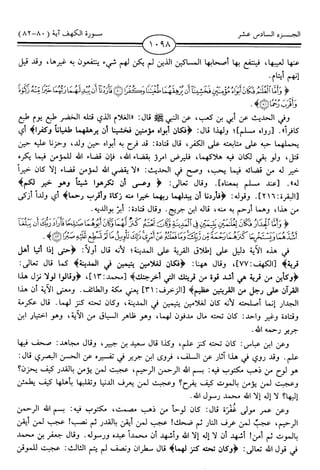 الجـــزء السادس عشر
١٠٩٨
سـورة الكهف آية (٨٠-٨٢)
عنها لعيبها، فينتفع بها أصحابها المساكين الذين لم يكن لهم شيء ينتفعون به غيرها، وقد قيل
إنهم أيتام.
﴿ وَأَمَّا الْغُلَامُ فَكَانَ أَبَوَاهُ مُؤْمِنَيْنِ فَخَشِينَا أَن يُرْهِقَهُمَا طُغْيَانًا وَكُفْرًا ۝ فَأَرَدْنَا أَن يُبْدِلَهُمَا رَبُّهُمَا خَيْرًا مِّنْهُ زَكَاةً
وَأَقْرَبَ رُحْمًا ۝ ﴾.
وفي الحديث عن أبي بن كعب، عن النبي ﷺ قال: «الغلام الذي قتله الخضر طبع يوم طبع
كافراً». [رواه مسلم]؛ ولهذا قال: ﴿فكان أبواه مؤمنين فخشينا أن يرهقهما طغياناً وكفراً﴾ أي
يحملهما حبه على متابعته على الكفر، قال قتادة: قد فرح به أبواه حين ولد، وحزنا عليه حين
قتل، ولو بقي لكان فيه هلاكهما، فليرض امرؤ بقضاء الله، فإن قضاء الله للمؤمن فيما يكره
خير له من قضائه فيما يحب، وصح في الحديث: «لا يقضي الله لمؤمن قضاء إلا كان خيراً
له». [عند مسلم بمعناه]. وقال تعالى: ﴿ وعسى أن تكرهوا شيئاً وهو خير لكم﴾
[البقرة:٢١٦]. وقوله: ﴿فأردنا أن يبدلهما ربهما خيرا منه زكاة وأقرب رحما﴾ أي ولداً أزكى
من هذا، وهما أرحم به منه، قاله ابن جريج. وقال قتادة: أبرّ بوالديه.
﴿ وَأَمَّا الْجِدَارُ فَكَانَ لِغُلَامَيْنِ يَتِيمَيْنِ فِي الْمَدِينَةِ وَكَانَ تَحْتَهُ كَنزٌ لَّهُمَا وَكَانَ أَبُوهُمَا صَالِحًا فَأَرَادَ رَبُّكَ أَن يَبْلُغَا
في هذه الآية دليل على إطلاق القرية على المدينة، لأنه قال أولاً: ﴿حتى إذا أتيا أهل
قرية﴾ [الكهف:٧٧]، وقال ههنا: ﴿فكان لغلامين يتيمين في المدينة﴾ كما قال تعالى:
﴿وكأين من قرية هي أشد قوة من قريتك التي أخرجتك﴾ [محمد:١٣]، ﴿وقالوا لولا نزل هذا
القرآن على رجل من القريتين عظيم﴾ [الزخرف:٣١] يعني مكة والطائف. ومعنى الآية أن هذا
الجدار إنما أصلحته لأنه كان لغلامين يتيمين في المدينة، وكان تحته كنز لهما. قال عكرمة
وقتادة وغير واحد: كان تحته مال مدفون لهما، وهو ظاهر السياق من الآية، وهو اختيار ابن
جرير رحمه الله.
وعن ابن عباس: كان تحته كنز علم، وكذا قال سعيد بن جبير، وقال مجاهد: صحف فيها
علم. وقد روي في هذا آثار عن السلف، فروى ابن جرير في تفسيره عن الحسن البصري قال:
هو لوح من ذهب مكتوب فيه: بسم الله الرحمن الرحيم، عجبت لمن يؤمن بالقدر كيف يحزن؟
وعجبت لمن يؤمن بالموت كيف يفرح؟ وعجبت لمن يعرف الدنيا وتقلبها بأهلها كيف يطمئن
إليها؟ لا إله إلا الله محمد رسول الله.
وعن عمر مولى غُفْرَة قال: كان لوحاً من ذهب مصمت، مكتوب فيه: بسم الله الرحمن
الرحيم، عجبٌ لمن عرف النار ثم ضحك! عجب لمن أيقن بالقدر ثم نصب! عجب لمن أيقن
بالموت ثم أمن! أشهد أن لا إله إلا الله وأشهد أن محمداً عبده ورسوله. وقال جعفر بن محمد
في قول الله تعالى: ﴿وكان تحته كنز لهما﴾ قال سطران ونصف لم يتم الثالث: عجبت للموقن